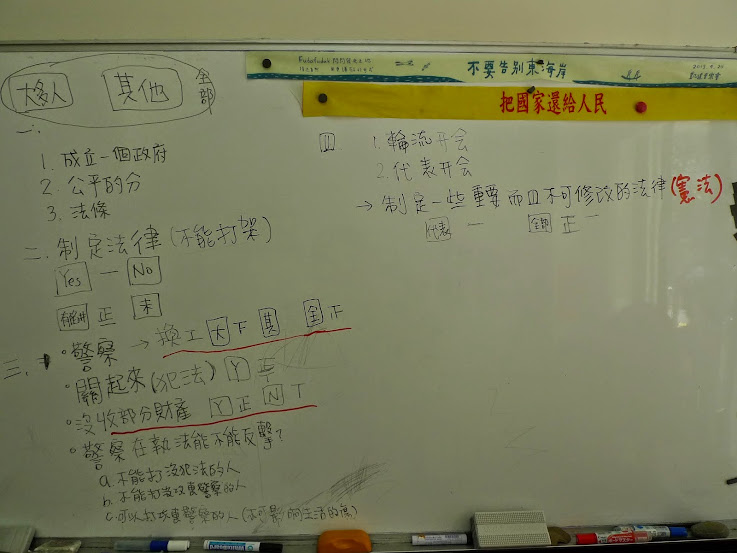 不要告别東海岸
把國家還給人民
大多人 其他 全部
一、
1. 成立一個政府
2. 公平的分
3. 法條
二、制定法律(不能打架)
Yes 一 No
正 未
三、
• 警察 → 換工 大 下 其 全 正
• 關起來(犯法) Y 正
• 沒收部分財產 Y 正 N T
• 警察在執法能不能反擊?
a. 不能打沒犯法的人
b. 不能打沒攻擊警察的人
c. 可以打攻擊警察的人(不可影响生活的傷)
四、 1. 輪流开会
2. 代表开会
→ 制定一些重要而且不可修改的法律(憲法)
代表 一 全部 正一